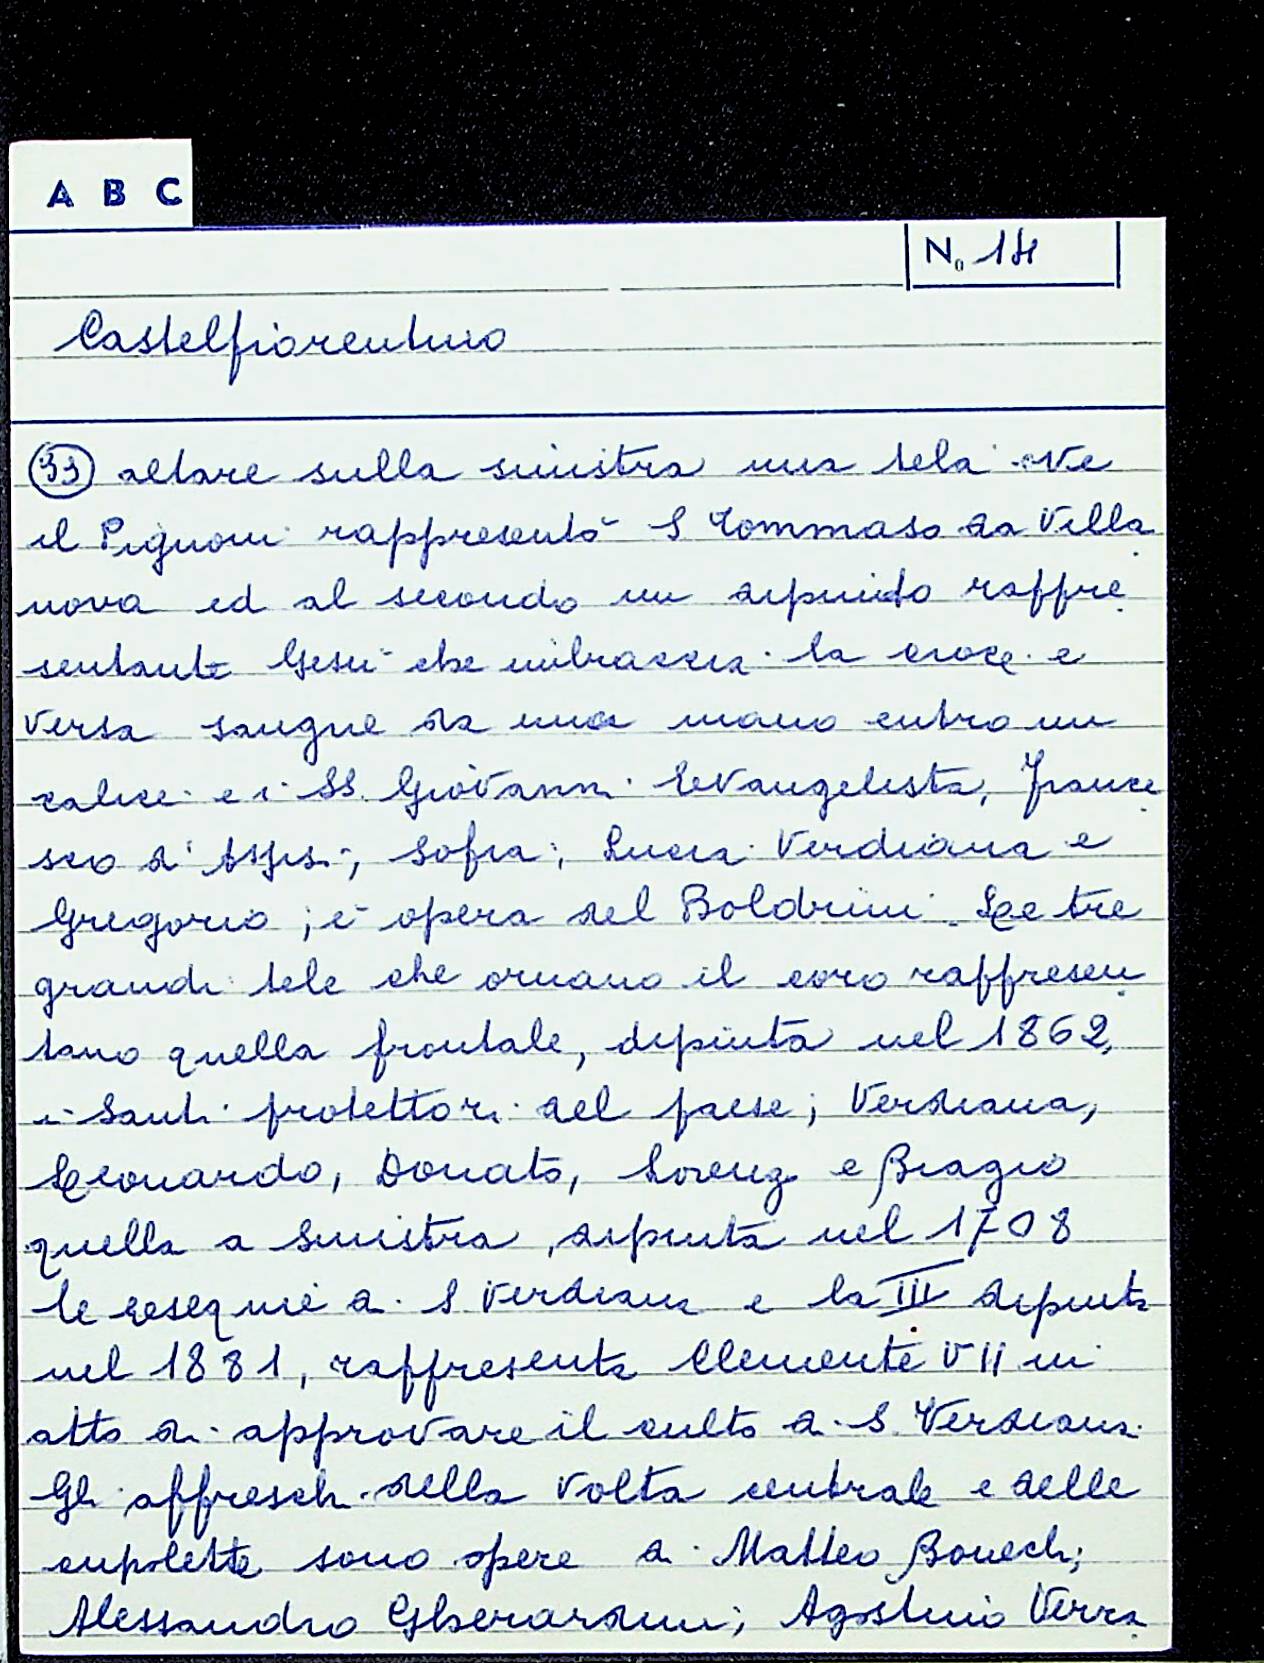 A B C
No 14
Castelfiorentino
33 altare sulla sinistra una tela ove
il Pignoni rappresentò S Tommaso da Villa
nova ed al secondo un dipinto raffre
sentante Gesù che imbraccia la croce e
versa sangue da una mano entro un
calice e i SS. Giovanni Evangelista, France
sco d'Assisi, Sofia; Lucia Verdiana e
Gregorio; è opera del Boldrini. Le tre
grandi tele che ornano il coro raffresen
tano quella frontale, dipinta nel 1862,
i Santi protettori del paese; Verdiana,
Leonardo, Donato, Lorenzo e Biagio
quella a sinistra, dipinta nel 1708
le esequie di S Verdiana e la III dipinta
nel 1881, raffresenta Clemente VII in
atto di approvare il culto di S. Verdiana.
Gli affreschi della volta centrale e delle
cupolette sono opere di Matteo Bonechi;
Alessandro Gherardini; Agostino Verra